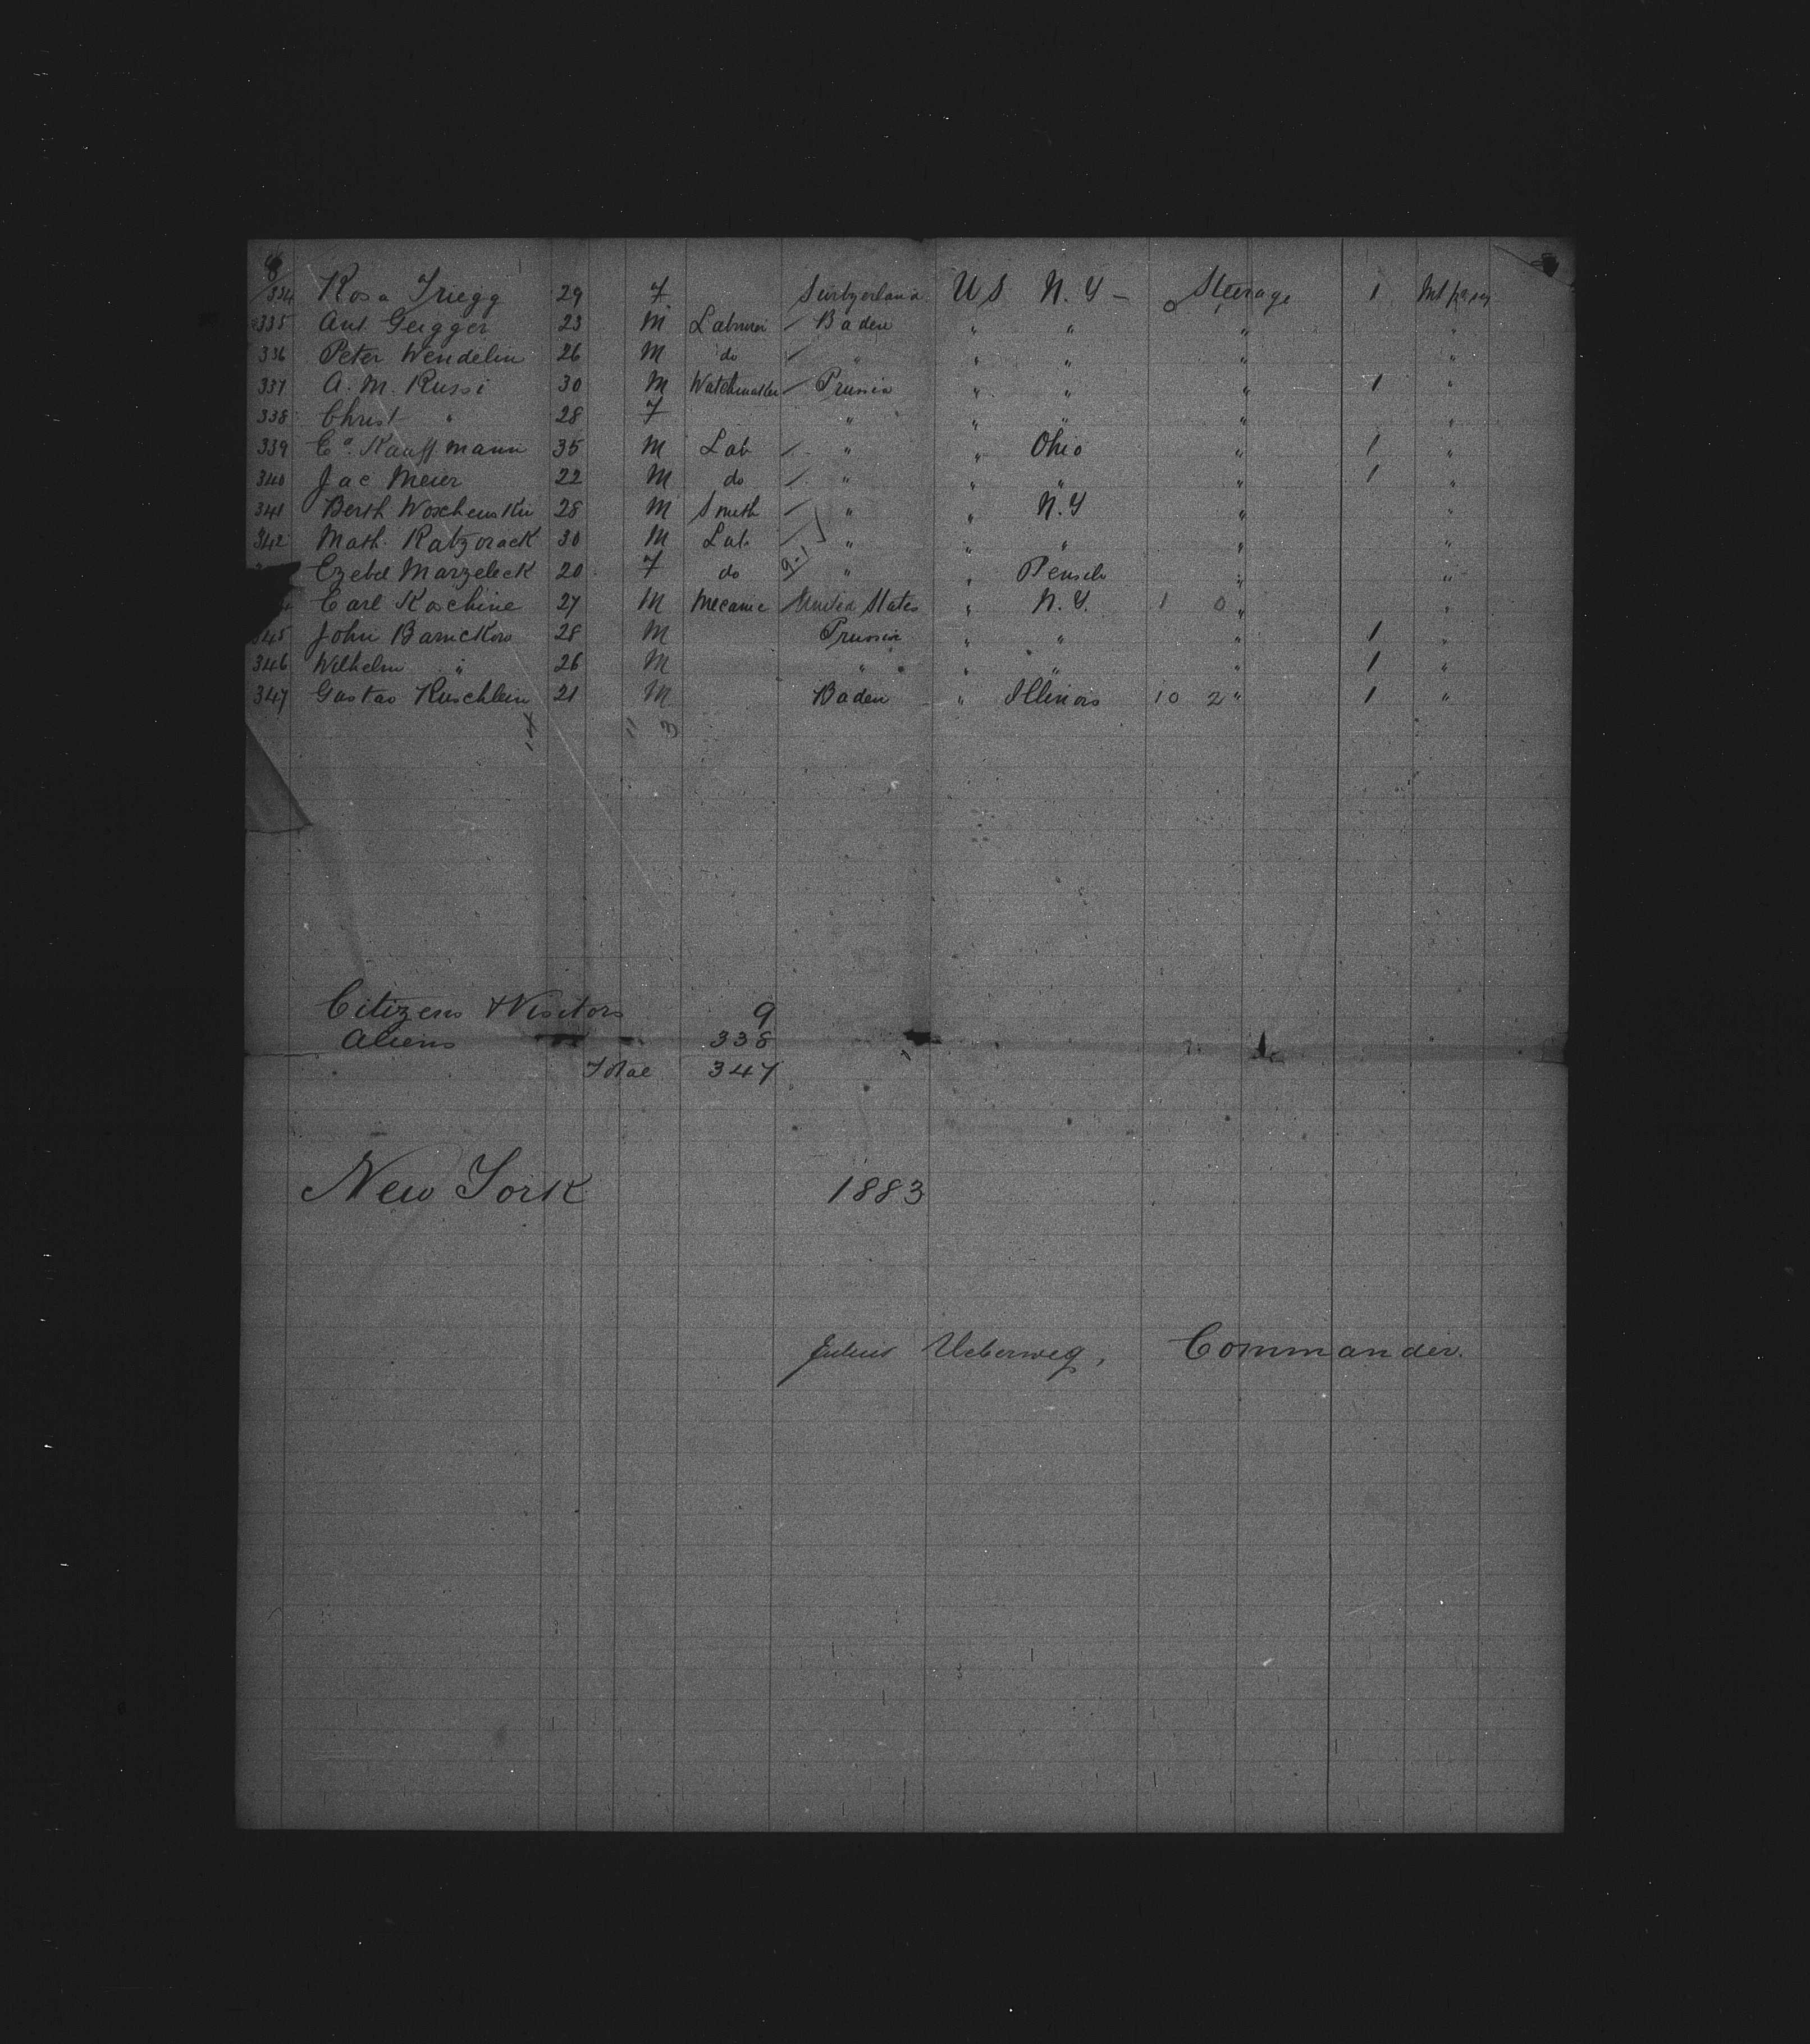 8
334 Rosa Triegg 29 F Switzerland US N.Y – Steerage 1
335 Ant Geigger 23 M Baden " " " "
336 Peter Wendelin 26 M do " " " " "
337 A. M. Russi 30 M Watchmaker Prussia " " " 1 "
338 Christ " 28 F " " " " "
339 Kauffmann 35 M Lab " " Ohio " 1 "
340 Jac Meier 22 M do " " " " 1 "
341 Berth 28 M Smith " " N.Y " "
342 Math. Ratzorack 30 M Lab. " " " " "
Marzeleck 20 F do " " " "
Carl Koschine 27 M Mecanic United States " N.Y. 1 0 " "
345 John Barnckow 28 M Prussia " " " 1 "
346 Wilhelm " 26 M " " " " 1 "
347 Gustav Kuschlein 21 M Baden " Illinois 10 2 " 1 "
14 11 3
Citizens & Visitors 9
Aliens 338
Total 347
New York 1883
Julius Ueberweg, Commander.